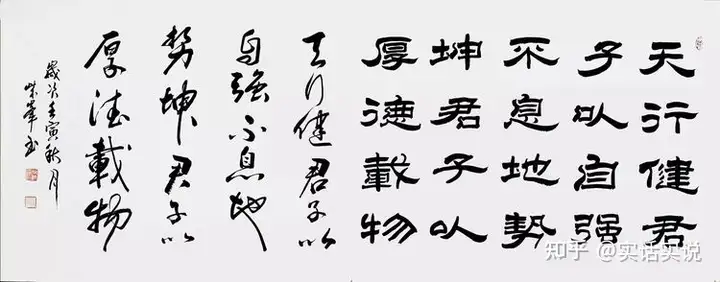 天行健君
子以自强
不息地勢
坤君子以
厚德載物
天行健君子以
自强不息地
势坤君子以
厚德載物
歲次壬寅秋月
峯书
知乎 @实话实说